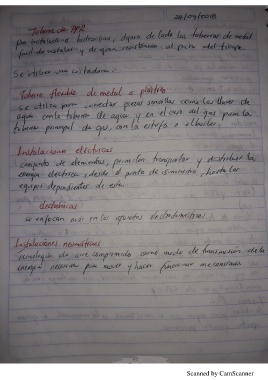 24/09/2018
Tuberia de PPR
para instalaciones hidraulicas, dejara de lado las tuberias de metal
facil de instalar y de gran resistencia al paso del tiempo.
Se utiliza una soldadora.
Tuberia flexible de metal o plastico
se utiliza para conectar piezas sencillas como las llaves de
agua con la tuberia de agua y en el caso del gas para la
tuberia principal de gas, con la estufa o el boiler.
Instalaciones electricas
conjunto de elementos, permiten transportar y distribuir la
energia electrica, desde el punto de suministro, hasta los
equipos dependientes de esta.
electronicas
se enfocan mas en los aparatos electrodomesticos
Instalaciones neumaticas
Tecnologia de aire comprimido como modo de transmision de la
energia necesaria para mover y hacer funcionar mecanismos
Scanned by CamScanner